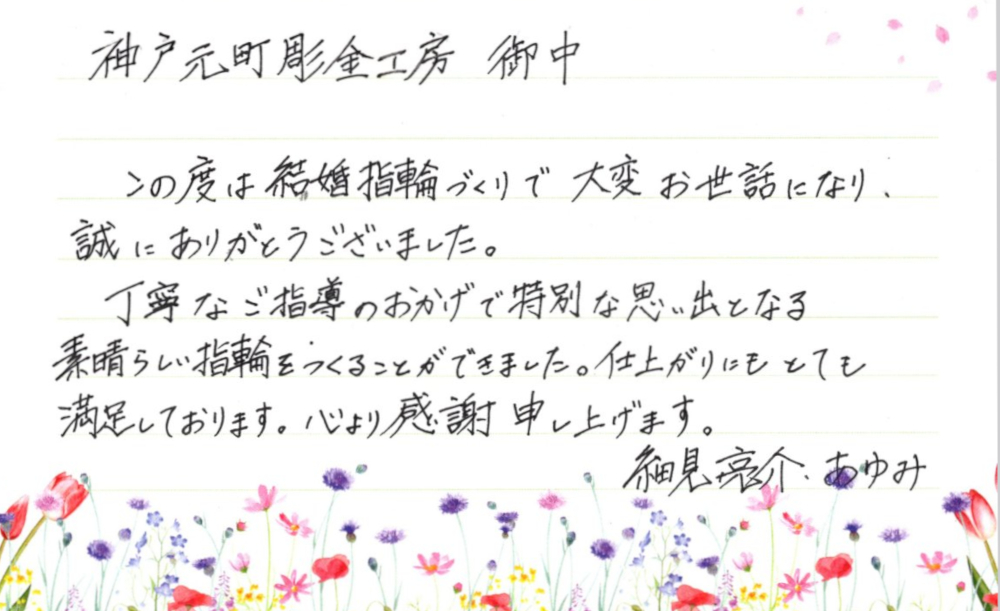 神戸元町彫金工房 御中
この度は結婚指輪づくりで大変お世話になり、
誠にありがとうございました。
丁寧なご指導のおかげで特別な思い出となる
素晴らしい指輪をつくることができました。仕上がりにもとても
満足しております。心より感謝申し上げます。
細見亮介・あゆみ